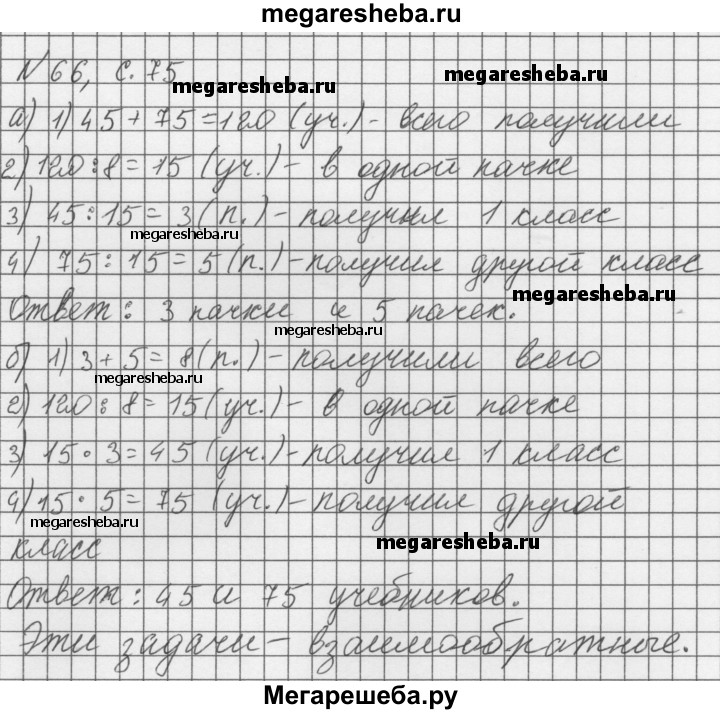 megaresheba.ru
№ 66, с. 75
megaresheba.ru
megaresheba.ru
а) 1) 45 + 75 = 120 (уч.) - всего получили
2) 120 : 8 = 15 (уч.) - в одной пачке
3) 45 : 15 = 3 (п.) - получил 1 класс
megaresheba.ru
4) 75 : 15 = 5 (п.) - получил другой класс
megaresheba.ru
Ответ: 3 пачки и 5 пачек.
megaresheba.ru
б) 1) 3 + 5 = 8 (п.) - получили всего
megaresheba.ru
2) 120 : 8 = 15 (уч.) - в одной пачке
3) 15 · 3 = 45 (уч.) - получил 1 класс
4) 15 · 5 = 75 (уч.) - получил другой
megaresheba.ru
класс
megaresheba.ru
Ответ: 45 и 75 учебников.
Эти задачи - взаимообратные.
Мегарешеба.ру